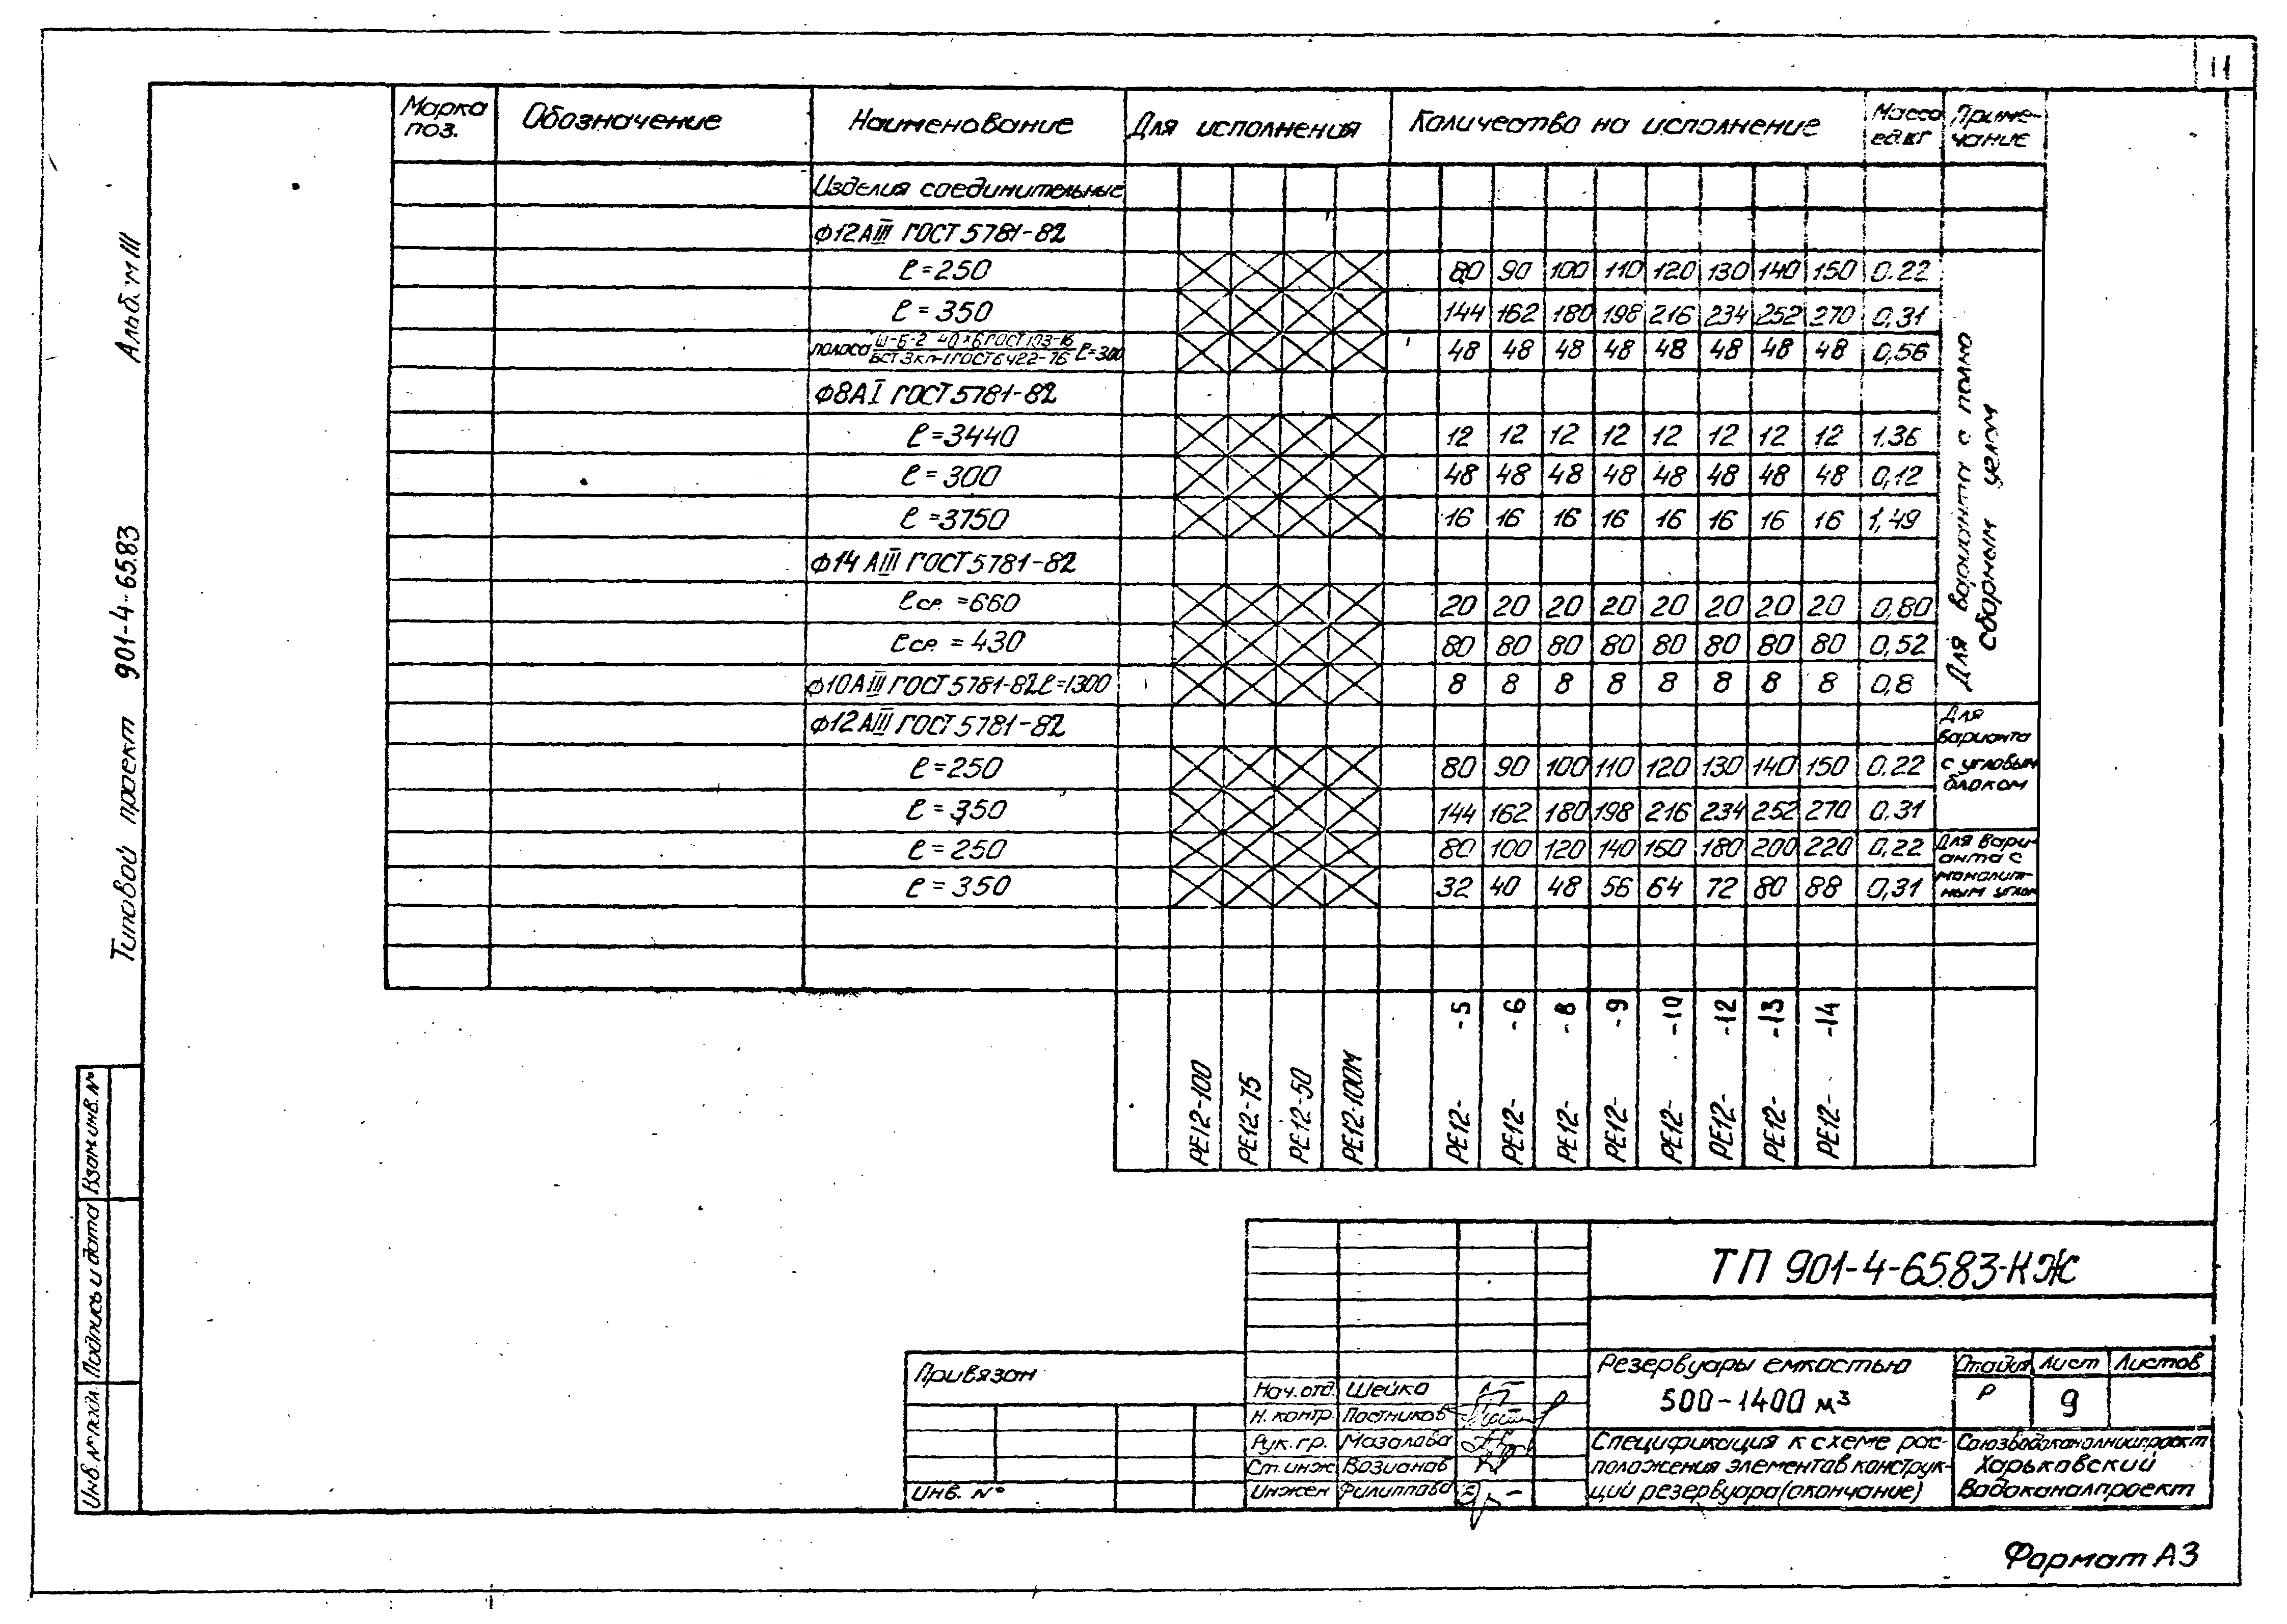 11
Альбом III
Типовой проект 901-4-65.83
Марка поз. Обозначение Наименование Для исполнения Количество на исполнение Масса ед.кг Примечание
Изделия соединительные
Ф12АIII ГОСТ 5781-82
ℓ=250 80 90 100 110 120 130 140 150 0.22
ℓ=350 144 162 180 198 216 234 252 270 0,31
полоса Ш-Б-2 40×6 ГОСТ 103-76 / ВСТ3кп-1 ГОСТ 6422-76 ℓ=300 48 48 48 48 48 48 48 48 0,56
Ф8АI ГОСТ 5781-82
ℓ=3440 12 12 12 12 12 12 12 12 1,36
ℓ=300 48 48 48 48 48 48 48 48 0,12
ℓ=3750 16 16 16 16 16 16 16 16 1,49
Ф14АIII ГОСТ 5781-82
ℓср.=660 20 20 20 20 20 20 20 20 0,80
ℓср.=430 80 80 80 80 80 80 80 80 0,52
Ф10АIII ГОСТ 5781-82 ℓ=1300 8 8 8 8 8 8 8 8 0,8
Для варианта с полно
сборным углом
Ф12АIII ГОСТ 5781-82
ℓ=250 80 90 100 110 120 130 140 150 0.22
ℓ=350 144 162 180 198 216 234 252 270 0.31
Для
варианта
с угловым
блоком
ℓ=250 80 100 120 140 160 180 200 220 0,22
ℓ=350 32 40 48 56 64 72 80 88 0,31
Для вари-
анта с
монолит-
ным углом
РЕ12-100 РЕ12-75 РЕ12-50 РЕ12-100М РЕ12- -5 РЕ12- -6 РЕ12- -8 РЕ12- -9 РЕ12- -10 РЕ12- -12 РЕ12- -13 РЕ12- -14
Инв.№ подл. Подпись и дата Взам.инв.№
ТП 901-4-65.83-КЖ
Привязан
Инв. №
Нач.отд. Шейко
Н.контр. Постников
Рук.гр. Мазалова
Ст.инж. Возианов
Инжен Филиппова
Резервуары емкостью
500-1400 м³
Стадия Лист Листов
Р 9
Спецификация к схеме рас-
положения элементов конструк-
ций резервуара (окончание)
Союзводоканалниипроект
Харьковский
Водоканалпроект
Формат А3